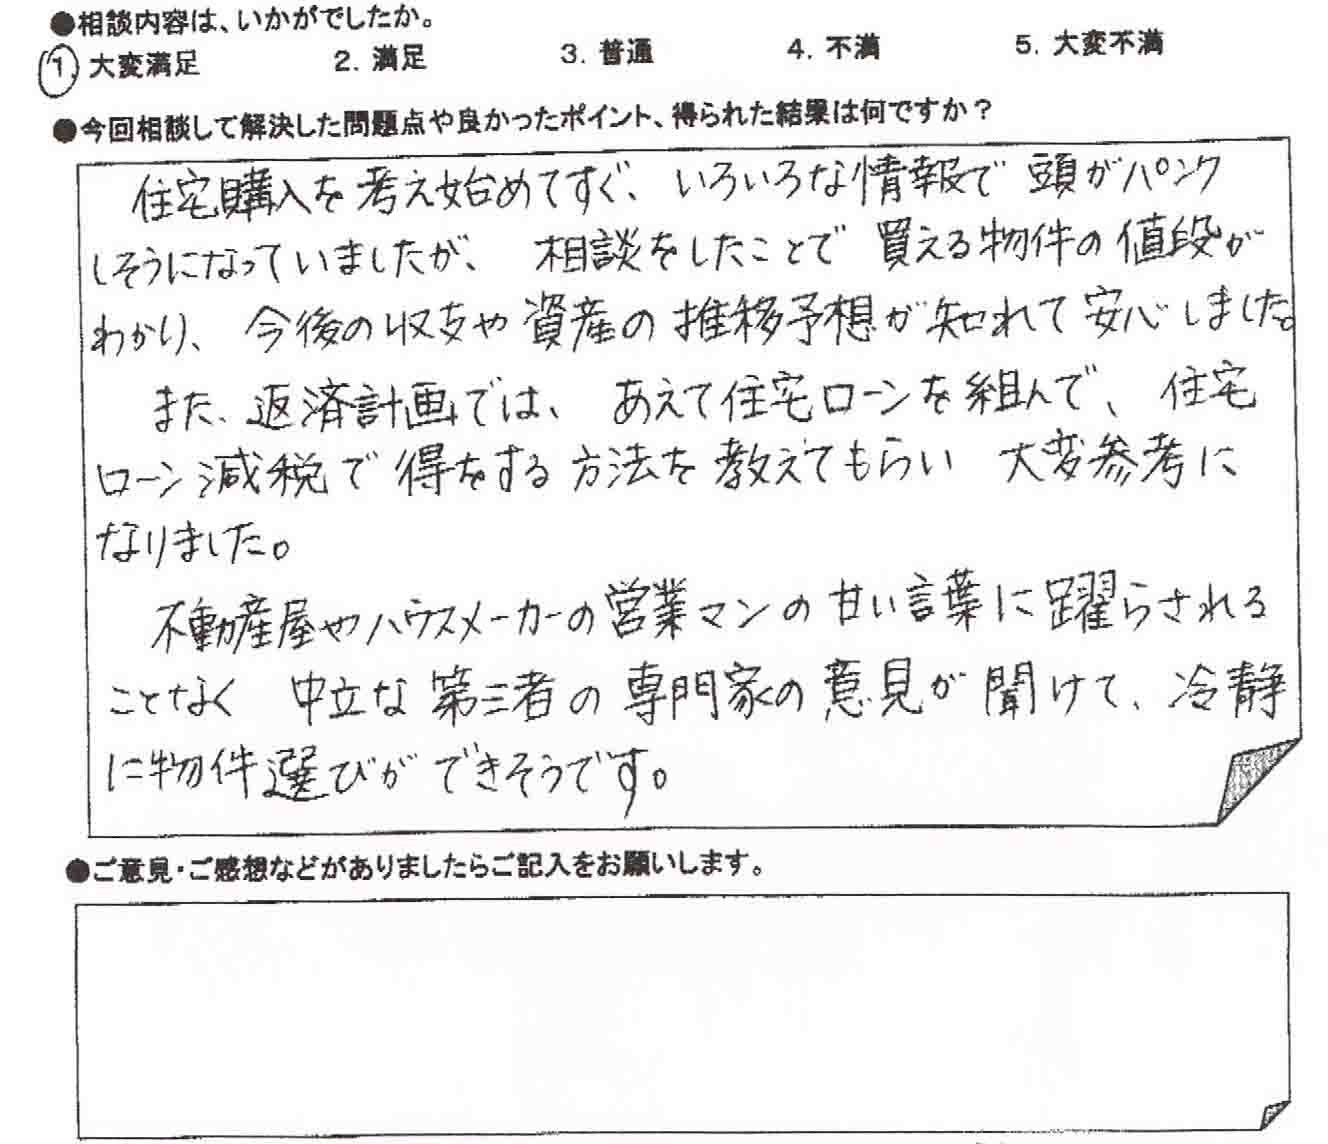 ●相談内容は、いかがでしたか。
1. 大変満足 2. 満足 3. 普通 4. 不満 5. 大変不満
●今回相談して解決した問題点や良かったポイント、得られた結果は何ですか？
住宅購入を考え始めてすぐ、いろいろな情報で頭がパンク
しそうになっていましたが、相談をしたことで買える物件の値段が
わかり、今後の収支や資産の推移予想が知れて安心しました。
また、返済計画では、あえて住宅ローンを組んで、住宅
ローン減税で得をする方法を教えてもらい大変参考に
なりました。
不動産屋やハウスメーカーの営業マンの甘い言葉に躍らされる
ことなく中立な第三者の専門家の意見が聞けて、冷静
に物件選びができそうです。
●ご意見・ご感想などがありましたらご記入をお願いします。